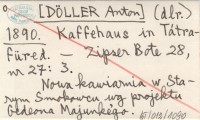 [DÖLLER Anton] (dlr.)
1890. Kaffehaus in Tátra-
füred. — Zipser Bote 28,
nr 27: 3.
Nowa kawiarnia w Sta-
rym Smokowcu wg projektu
Gedeona Majunkego.